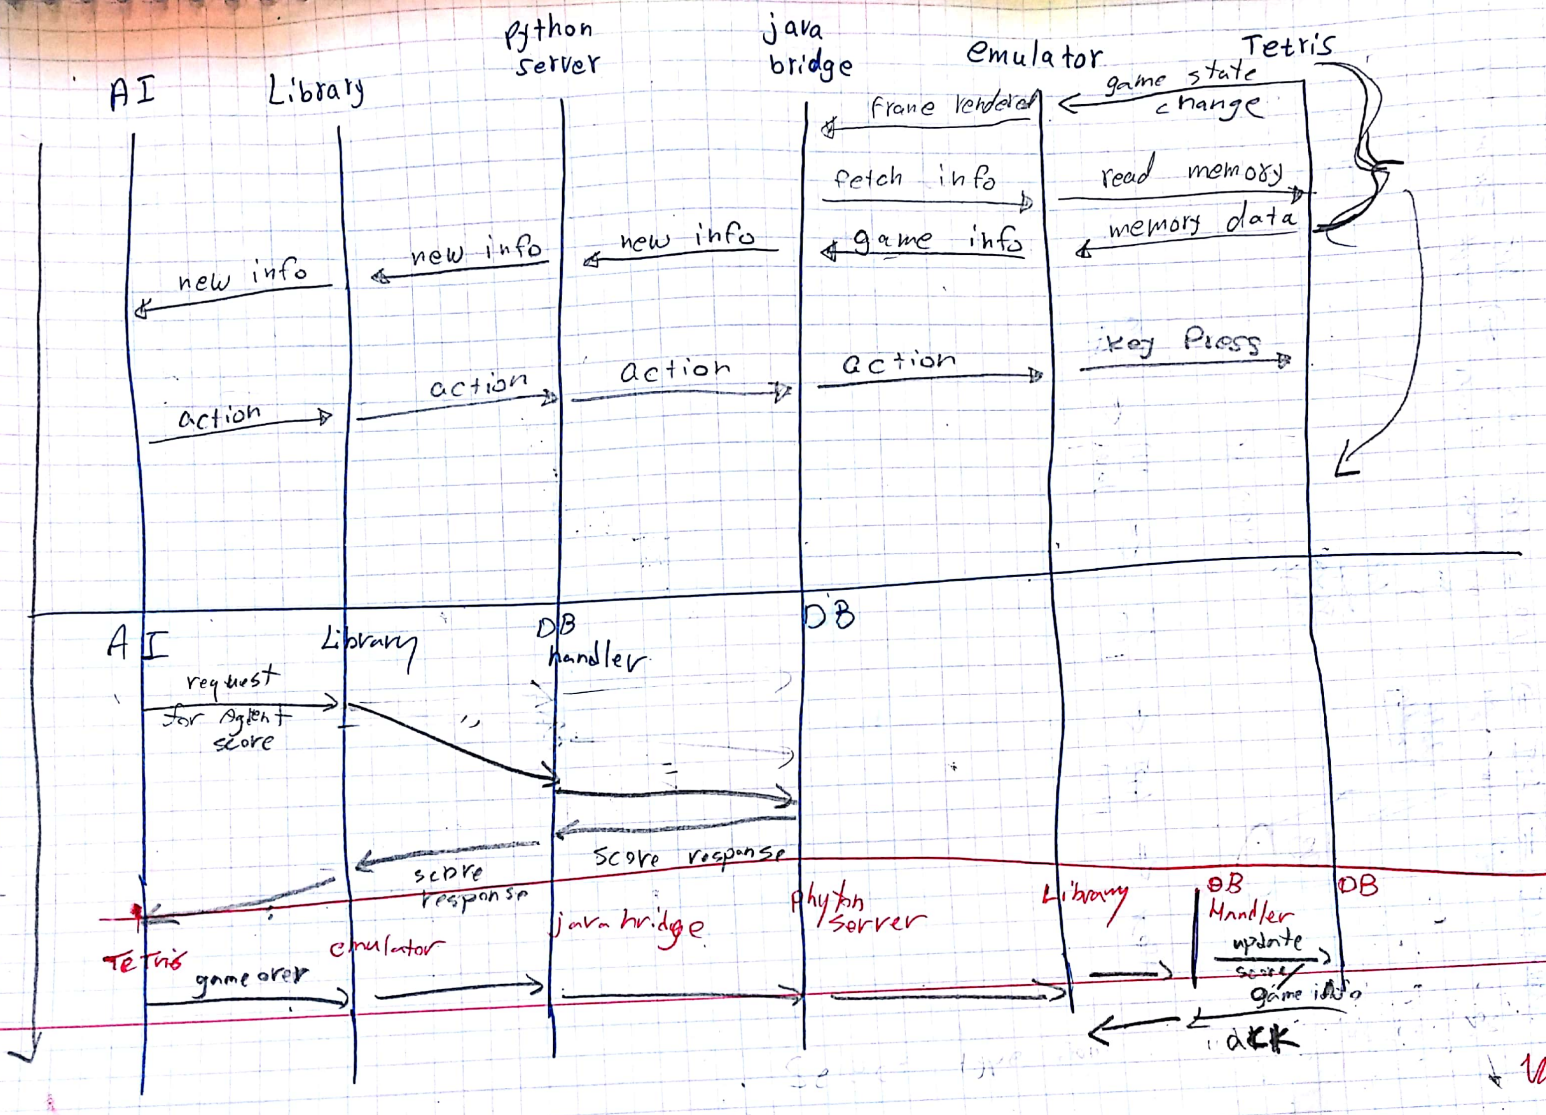 python
server
java
bridge
emulator
Tetris
AI
Library
game state
change
frame rendered
fetch info
read memory
memory data
game info
new info
new info
new info
key Press
action
action
action
action
AI
Library
DB
handler
DB
request
for Agent
score
score response
score
response
Tetris
emulator
java bridge
phyton
server
Library
DB
Handler
DB
game over
update
score/
game info
ack